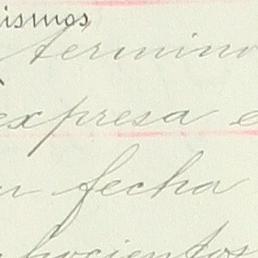 ismos
termino
expresa e
fecha
hocientos